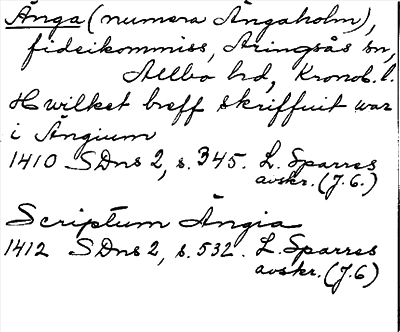 Änga (numera Ängaholm),
fideikommiss, Aringsås sn,
Allbo hd, Kronob. l.
Hwilket breff skriffuit war
i Ängium
1410 SDns 2, s. 345. L. Sparres
avskr. (J.G.)
Scriptum Ängia
1412 SDns 2, s. 532. L. Sparres
avskr. (J.G)